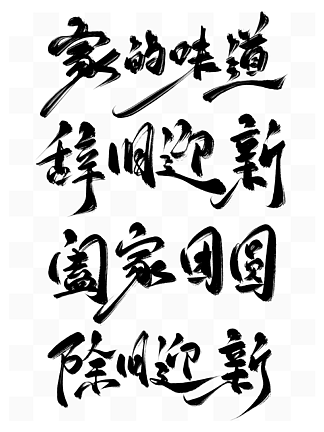 家的味道
辞旧迎新
阖家团圆
除旧迎新